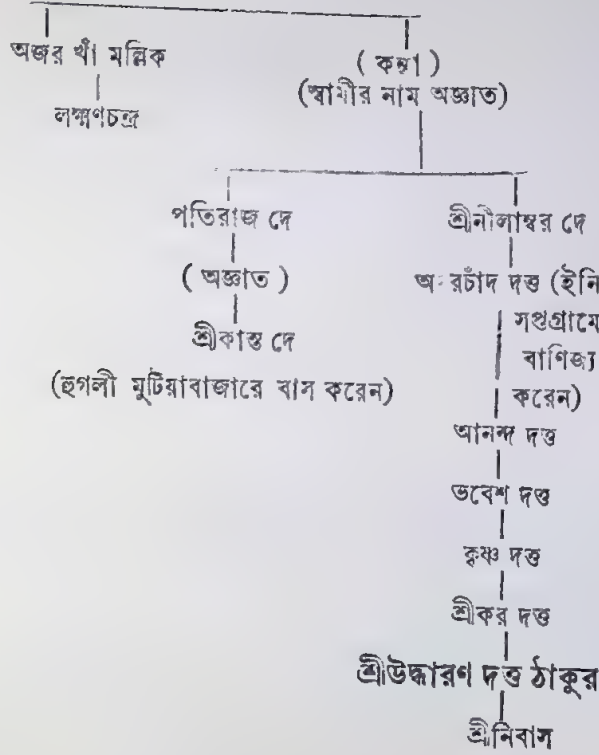 অজর খাঁ মল্লিক
লক্ষ্মণচন্দ্র
( কন্যা )
(স্বামীর নাম অজ্ঞাত)
পতিরাজ দে
( অজ্ঞাত )
শ্রীকান্ত দে
(হুগলী মুটিয়াবাজারে বাস করেন)
শ্রীনীলাম্বর দে
দত্ত (ইনি
সপ্তগ্রামে
বাণিজ্য
করেন)
আনন্দ দত্ত
ভবেশ দত্ত
কৃষ্ণ দত্ত
শ্রীকর দত্ত
শ্রীউদ্ধারণ দত্ত ঠাকুর
শ্রীনিবাস